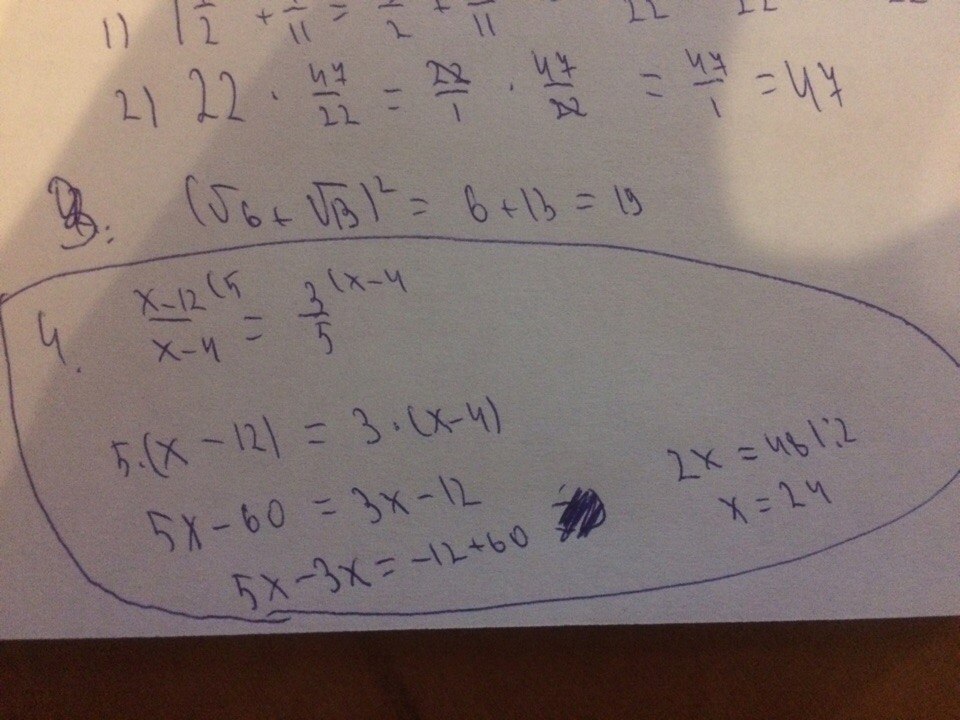 1) 1 1/2 + 1/11 = 3/2 + 1/11 22 22 22
2) 22 · 47/22 = 22/1 · 47/22 = 47/1 = 47
3: (√6 + √13)² = 6 + 13 = 19
4. x-12(5/x-4 = 3(x-4/5
5·(x - 12) = 3·(x-4)
5x - 60 = 3x - 12
5x - 3x = -12+60
2x = 48 |:2
x = 24